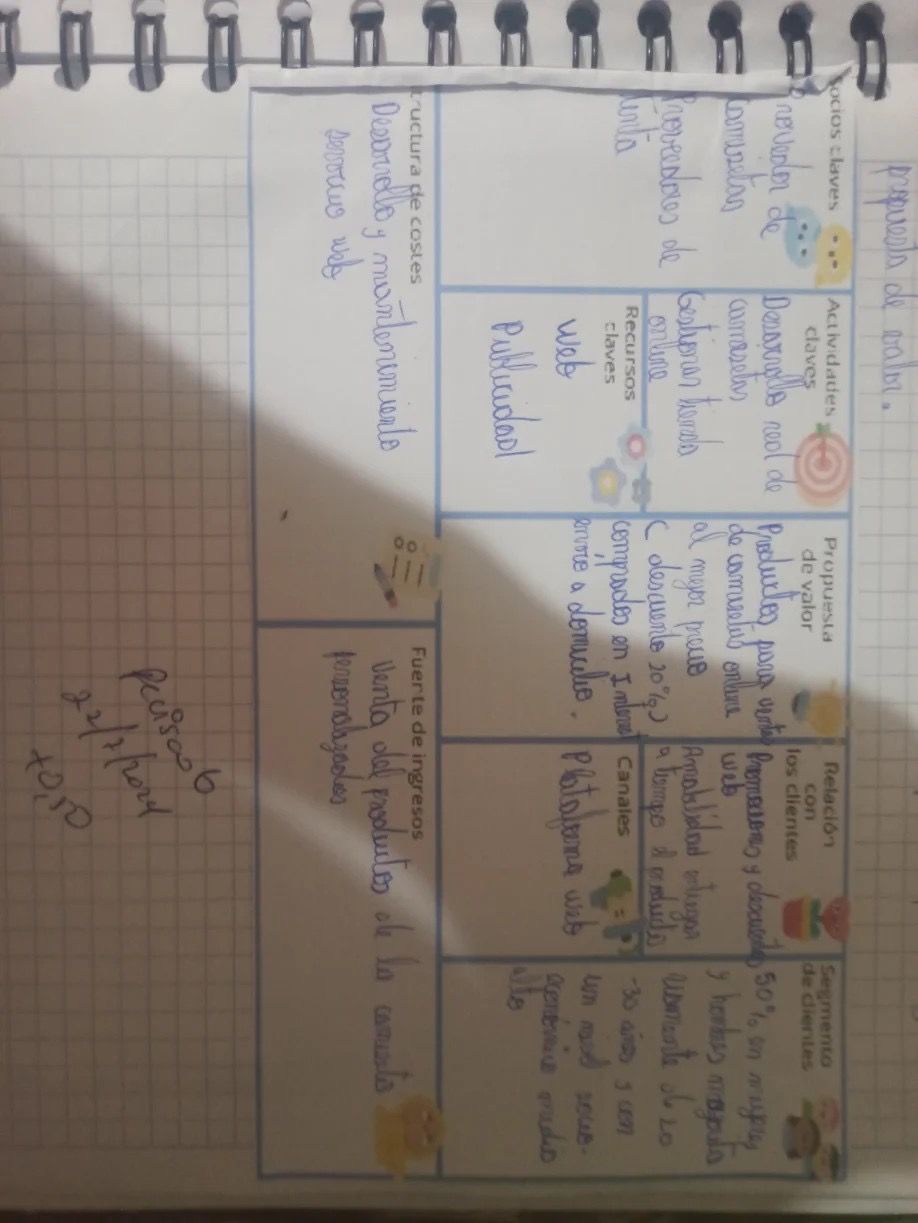 propuesta de valor.
ocios claves
Proveedor de
camisetas
Proveedores de
tinta
Actividades
claves
Desarrollo red de
camisetas
Gestionar tienda
online
Recursos
claves
web
Publicidad
Propuesta
de valor
Productos para ventas
de camisetas online
al mejor precio
( descuento 20%)
comprados en Internet
envio a domicilio.
Relación
con
los clientes
Promociones y descuentos
web
Amabilidad entregar
a tiempo el producto
Canales
Plataforma web
Segmento
de clientes
50% en mujeres
y hombres mayorita
riamente de 20
-30 años y con
un nivel socio-
económico medio
alto
ructura de costes
Desarrollo y mantenimiento
servicio web
Fuente de ingresos
Venta del productos de la camiseta
personalizados
+0,50